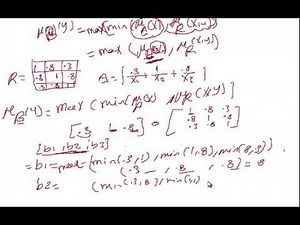 μ_B(y) = max(min(μ_A(x), μ_R(x,y)
= max ( μ_A(x), μ_R(x,y)
R = 1 .8 .3 .8 1 .8 .3 .8 1
A = [ .3/x₁ + 1/x₂ + .8/x₃ ]
μ_B(y) = max ( min (μ_A(x), μ_R(x,y)
[.3 1 .8] o [ 1 .8 .3 .8 1 .8 .3 .8 1 ]
[b1, b2, b3]
= b1 = max (min(.3,1), min(1,.8), min(.8,.3))
(.3 , .8 , .3) = .8
b2 = (min(.3,.8), min(1,